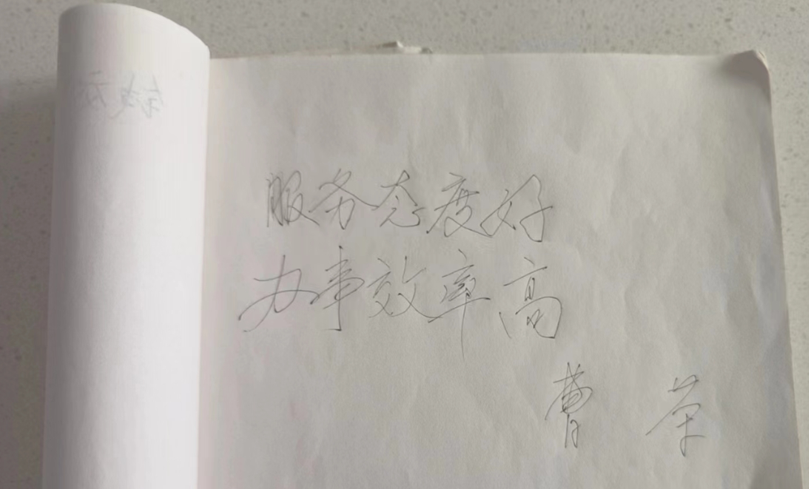 服务态度好
办事效率高
曹 荣